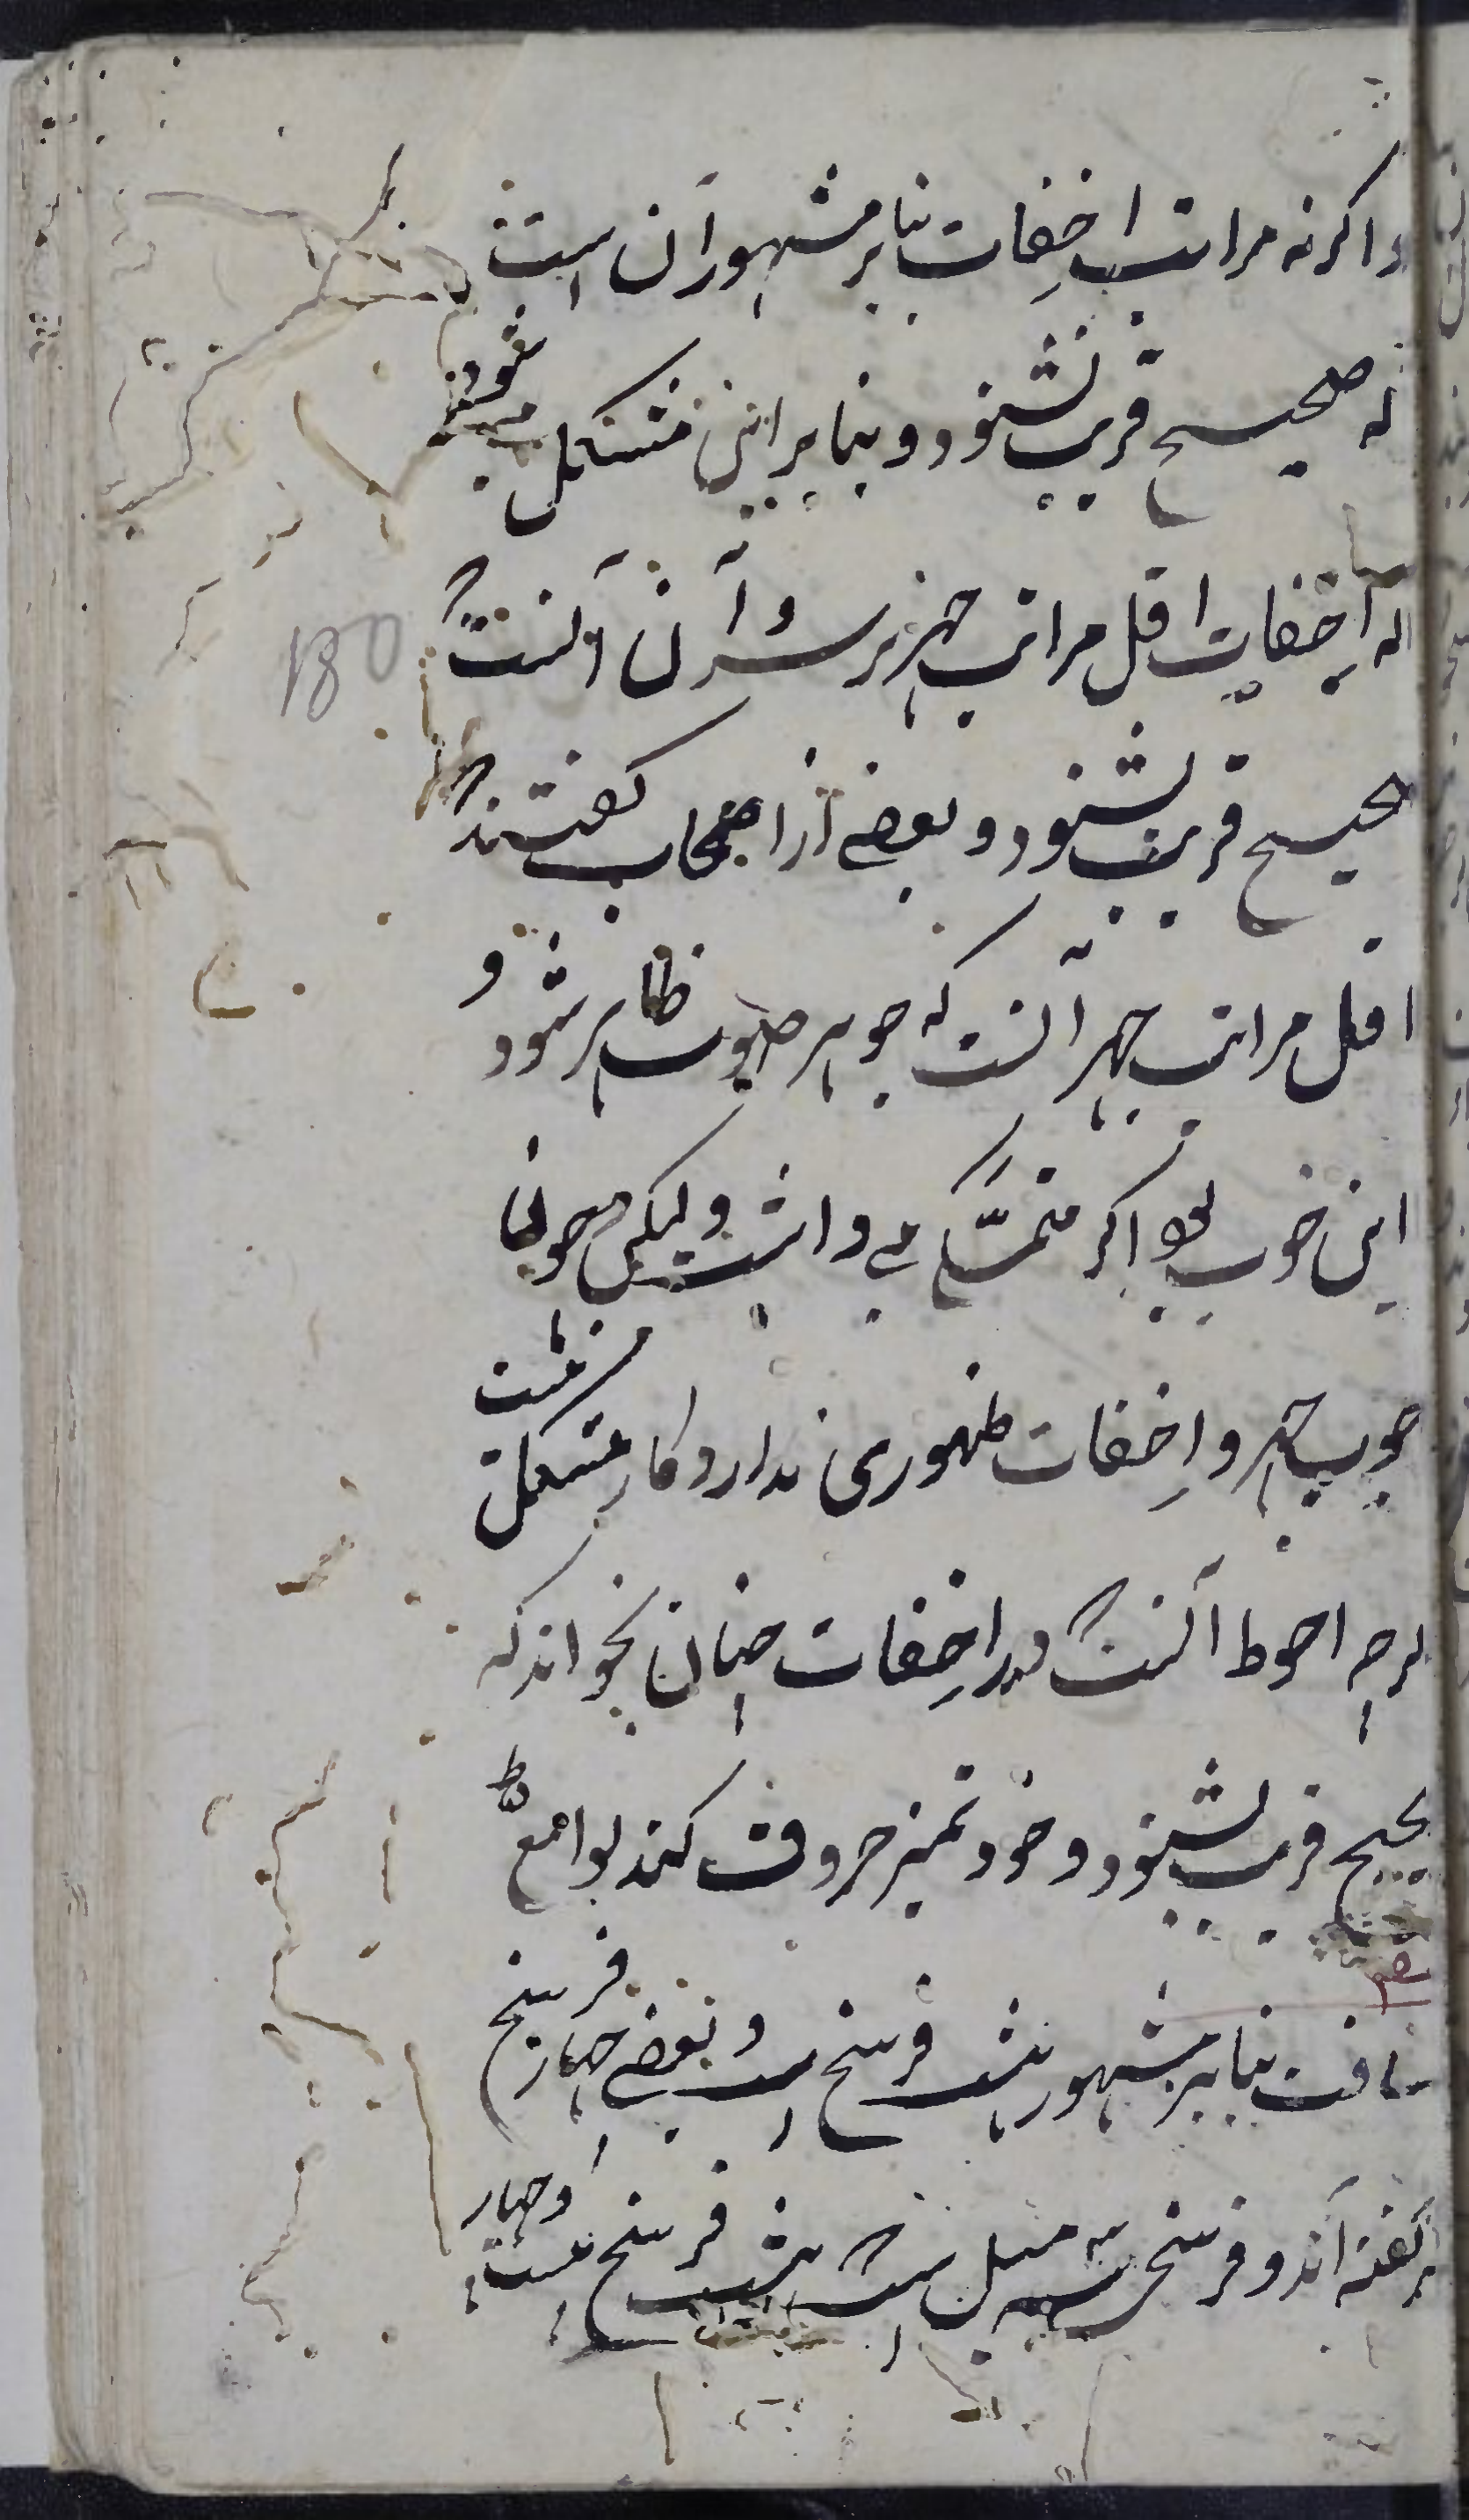 و اکر نه مراتب اخفات بنا بر مشهور آن است
که صحیح قریب نشنود و بنا بر این مشکل میشود
که اخفات اقل مراتب جهر بر سر آن آنست که
صحیح قریب بشنود و بعضی از اصحاب گفتند که
اقل مراتب جهر آنست که جوهر صوت ظاهر شود و
این خوب بود اکر متمسّکی می داشت ولیکن چون
وجوب جهر و اخفات ظهوری ندارد کار مشکل نیست
اکرچه احوط آنست که در اخفات چنان بخواند که
صحیح قریب نشنود و خود تمیز حروف کند لوامع ط
مسافت بنا بر مشهور هشت فرسخ است و بعضی چهار فرسخ
نیز گفته اند و فرسخی سه میل است که هشت فرسخ بیست و چهار
180